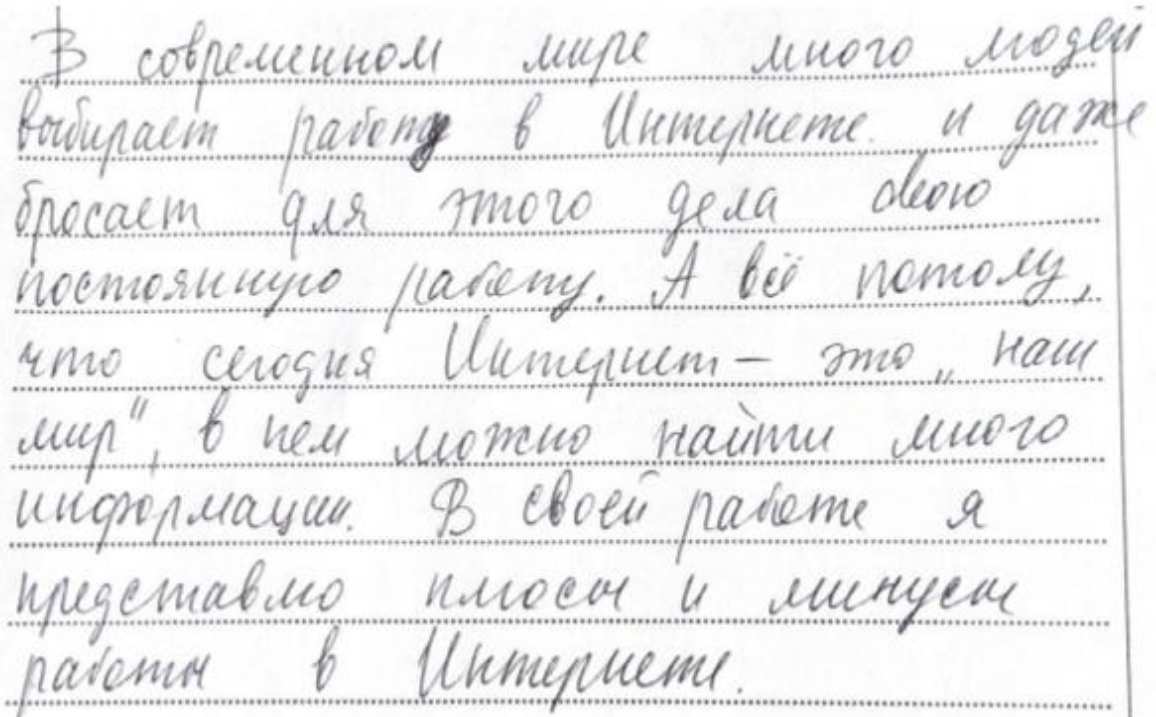 В современном мире много людей
выбирает работу в Интернете. и даже
бросает для этого дела свою
постоянную работу. А всё потому,
что сегодня Интернет – это „наш
мир", в нем можно найти много
информации. В своей работе я
представлю плюсы и минусы
работы в Интернете.